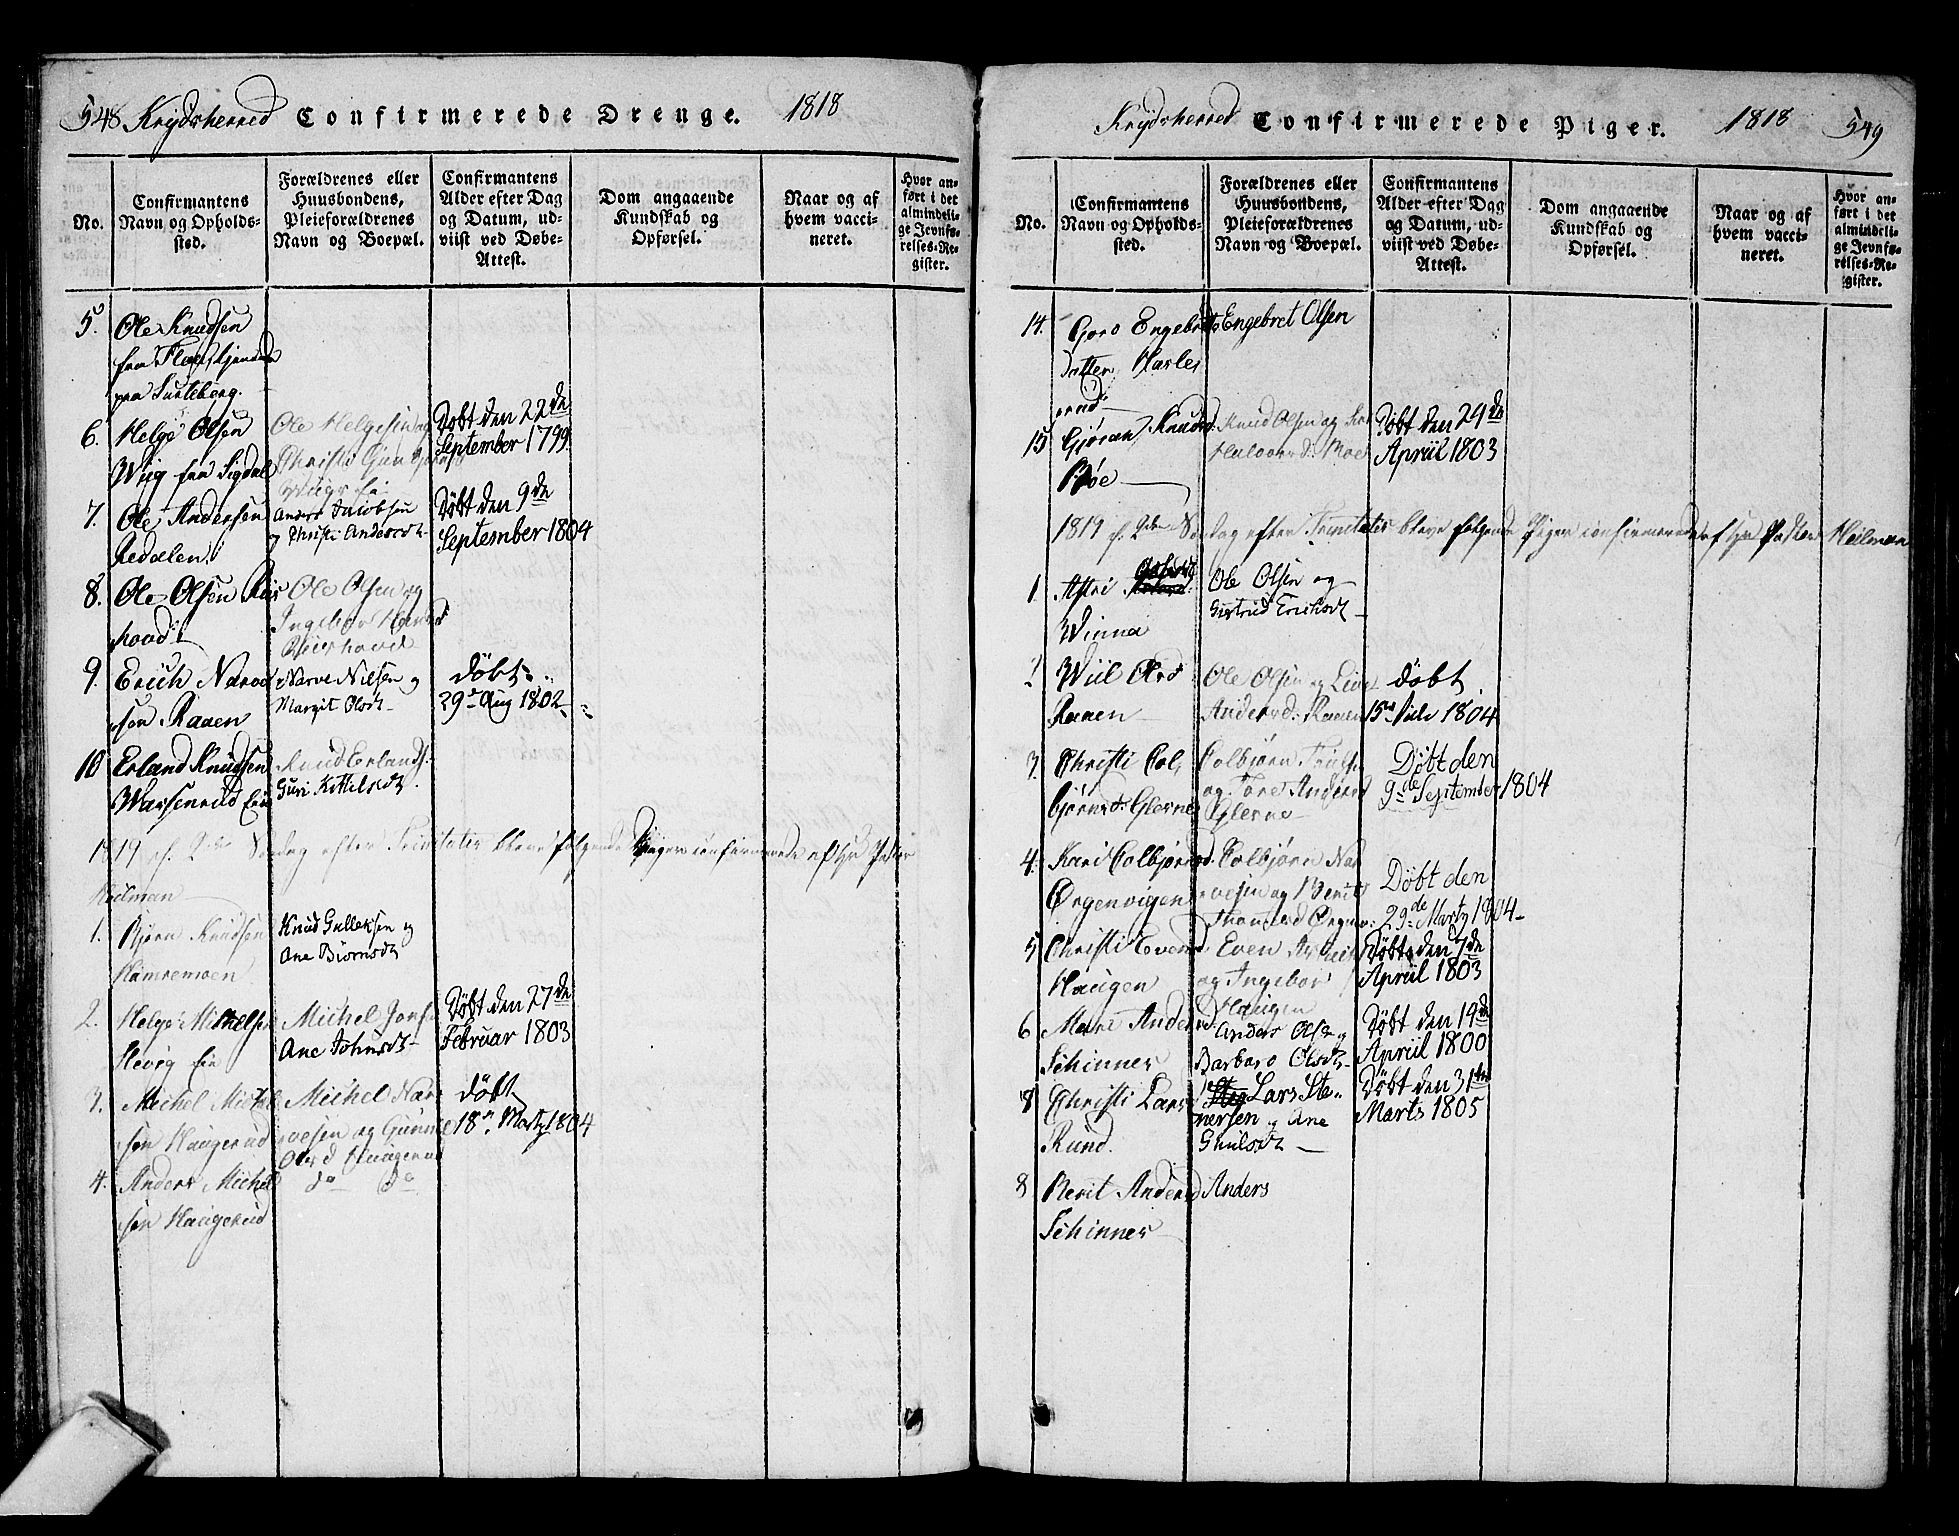 548 Krydsherred Confirmerede Drenge. 1818
No.
Confirmantens
Navn og Opholds-
sted.
Forældrenes eller
Huusbondens,
Pleieforældrenes
Navn og Boepæl.
Confirmantens
Alder efter Dag
og Datum, ud-
viist ved Døbe-
Attest.
Dom angaaende
Kundskab og
Opførsel.
Naar og af
hvem vacci-
neret.
Hvor an-
ført i det
almindeli-
ge Jevnfø-
relses-Re-
gister.
5. Ole Knudsen
fra
paa Surteberg.
6. Helge Olsen
Wiig fra Sigdal
Ole Helgesen og
Christi
Døbt den 22de
September 1799
7. Ole Andersen
Redalen
Anders Jacobsen
Christi Andersdt
Døbt den 9de
September 1804
8. Ole Olsen
hoved
Ole Olsen og
Ingebor
9. Erich Narve
sen Raaen
Narve Nilsen og
Margit Olsdt
døbt
29de Aug 1802
10 Erland Knudsen
Warsenrud
Knud Erlands.
Guri Kittilsdt.
1819 2den Søndag efter Trinitatis bleve følgende confirmerede af Hr Pastor
Heilman
1. Bjørn Knudsen
Hamremoen
Knud Gulleksen og
Ane Biørnsdt
2. Helge Mikkelsen
Hevig
Michel Jons
Ane Johnsdt
Døbt den 27de
Februar 1803
3. Michel Michel
sen Haugerud
Michel Nar
vesen og Gunni
Olsd Haugerud
døbt
18n Marty 1804
4. Anders Michel
sen Haugerud
do do
Krydsherred Confirmerede Piger. 1818 549
No.
Confirmantens
Navn og Opholds-
sted.
Forældrenes eller
Huusbondens,
Pleieforældrenes
Navn og Boepæl.
Confirmantens
Alder efter Dag
og Datum, ud-
viist ved Døbe-
Attest.
Dom angaaende
Kundskab og
Opførsel.
Naar og af
hvem vacci-
neret.
Hvor an-
ført i det
almindeli-
ge Jevnfø-
relses-Re-
gister.
14. Goro Engebrets
datter Hasles
erud
Engebret Olsen
15 Gjøran Knudsd.
Bøe
Knud Olsen og
Halvorsd. Moe
Døbt den 24de
Apriil 1803
1819 2den Søndag efter Trinitatis bleve følgende Piger confirmerede af Hr Pastor Heilman
1. Astri Olsd
Winna
Ole Olsen og
Giertrud Erichsdt
2 Wiil Olsd
Raaen
Ole Olsen og Live
Andersd. Raaen
døbt
15de Julv 1804
3. Christi Col
bjørnsd. Glerne
Colbjørn
og Tore Andersd
Glerne
Døbt den
9de September 1804
4. Kari Colbjørnsd.
Ørgenvigen
Colbjørn Nar
vesen og Berit
Døbt den
29de Marty 1804
5 Christi Evensd
Haugen
Even
og Ingebor
Haugen
Døbt den 7de
Apriil 1803
6 Mari Andersd.
Schinnes
Anders Olsen og
Barbaro Olsdt
Døbt den 19de
Apriil 1800
7 Christi Lars
Rund.
Lars Ste-
nersen og Ane
Ghulsdt
Døbt den 31te
Marts 1805
8 Berit Andersd
Schinnes
Anders